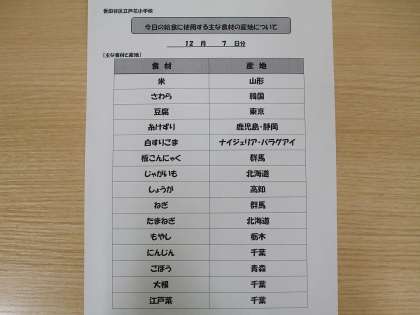 世田谷区立芦花小学校
今日の給食に使用する主な食材の産地について
12 月 7 日分
(主な食材と産地)
食 材 産 地
米 山形
さわら 韓国
豆腐 東京
糸けずり 鹿児島・静岡
白すりごま ナイジェリア・パラグアイ
板こんにゃく 群馬
じゃがいも 北海道
しょうが 高知
ねぎ 群馬
たまねぎ 北海道
もやし 栃木
にんじん 千葉
ごぼう 青森
大根 千葉
江戸菜 千葉